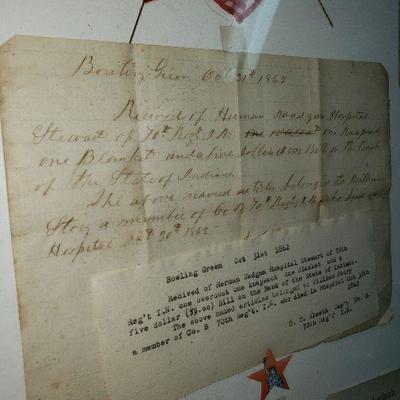 Bowling Green Oct 31st 1862
Recived of Herman Hospital
Stewart of 70th Regt I.N. one Knapsack
one Blanket and a five dollar Bill on the Bank
of the State of Indiana
The above named articles belongs to William
Story a member of Co B 70th Regt
Hospital Oct 30th 1862
Bowling Green Oct 31st 1862
Recived of Herman Hospital Stewart of 70th
Reg't I.N. one overcoat one knapsack one Blanket and a
five dollar ($5.00) Bill on the Bank of the State of Indiana.
The above named articles belonged to William Story
a member of Co. B 70th Reg't. I.N. who died in Hospital Oct 30th
1862
Co. B.
70th Reg't I.N.